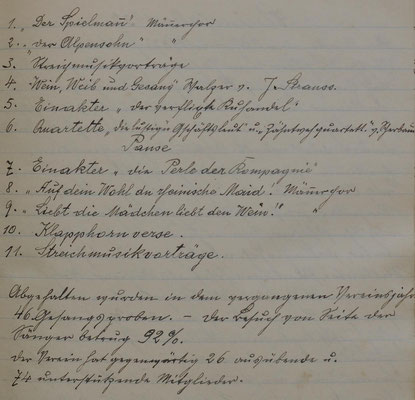 1. „Der Spielmann" Männerchor
2. „der Alpensohn" "
3. Streichmusikvorträge
4. Wein, Weib und Gesang Walzer v. J. Strauss.
5. Einakter „der verflixte Kuhandel"
6. Quartette, „die lustigen Gschäftsleut" u. „Zahnwehquartett" v.
Pause
7. Einakter „die Perle der Kompagnie"
8. „Auf dein Wohl du rheinische Maid." Männerchor
9. „Liebt die Mädchen liebt den Wein!" "
10. Klapphornverse.
11. Streichmusikvorträge.
Abgehalten wurden in dem vergangenen Vereinsjahr
46 Gesangsproben. – Der Besuch von Seite der
Sänger betrug 92%.
Der Verein hat gegenwärtig 26 ausübende u.
74 unterstützende Mitglieder.